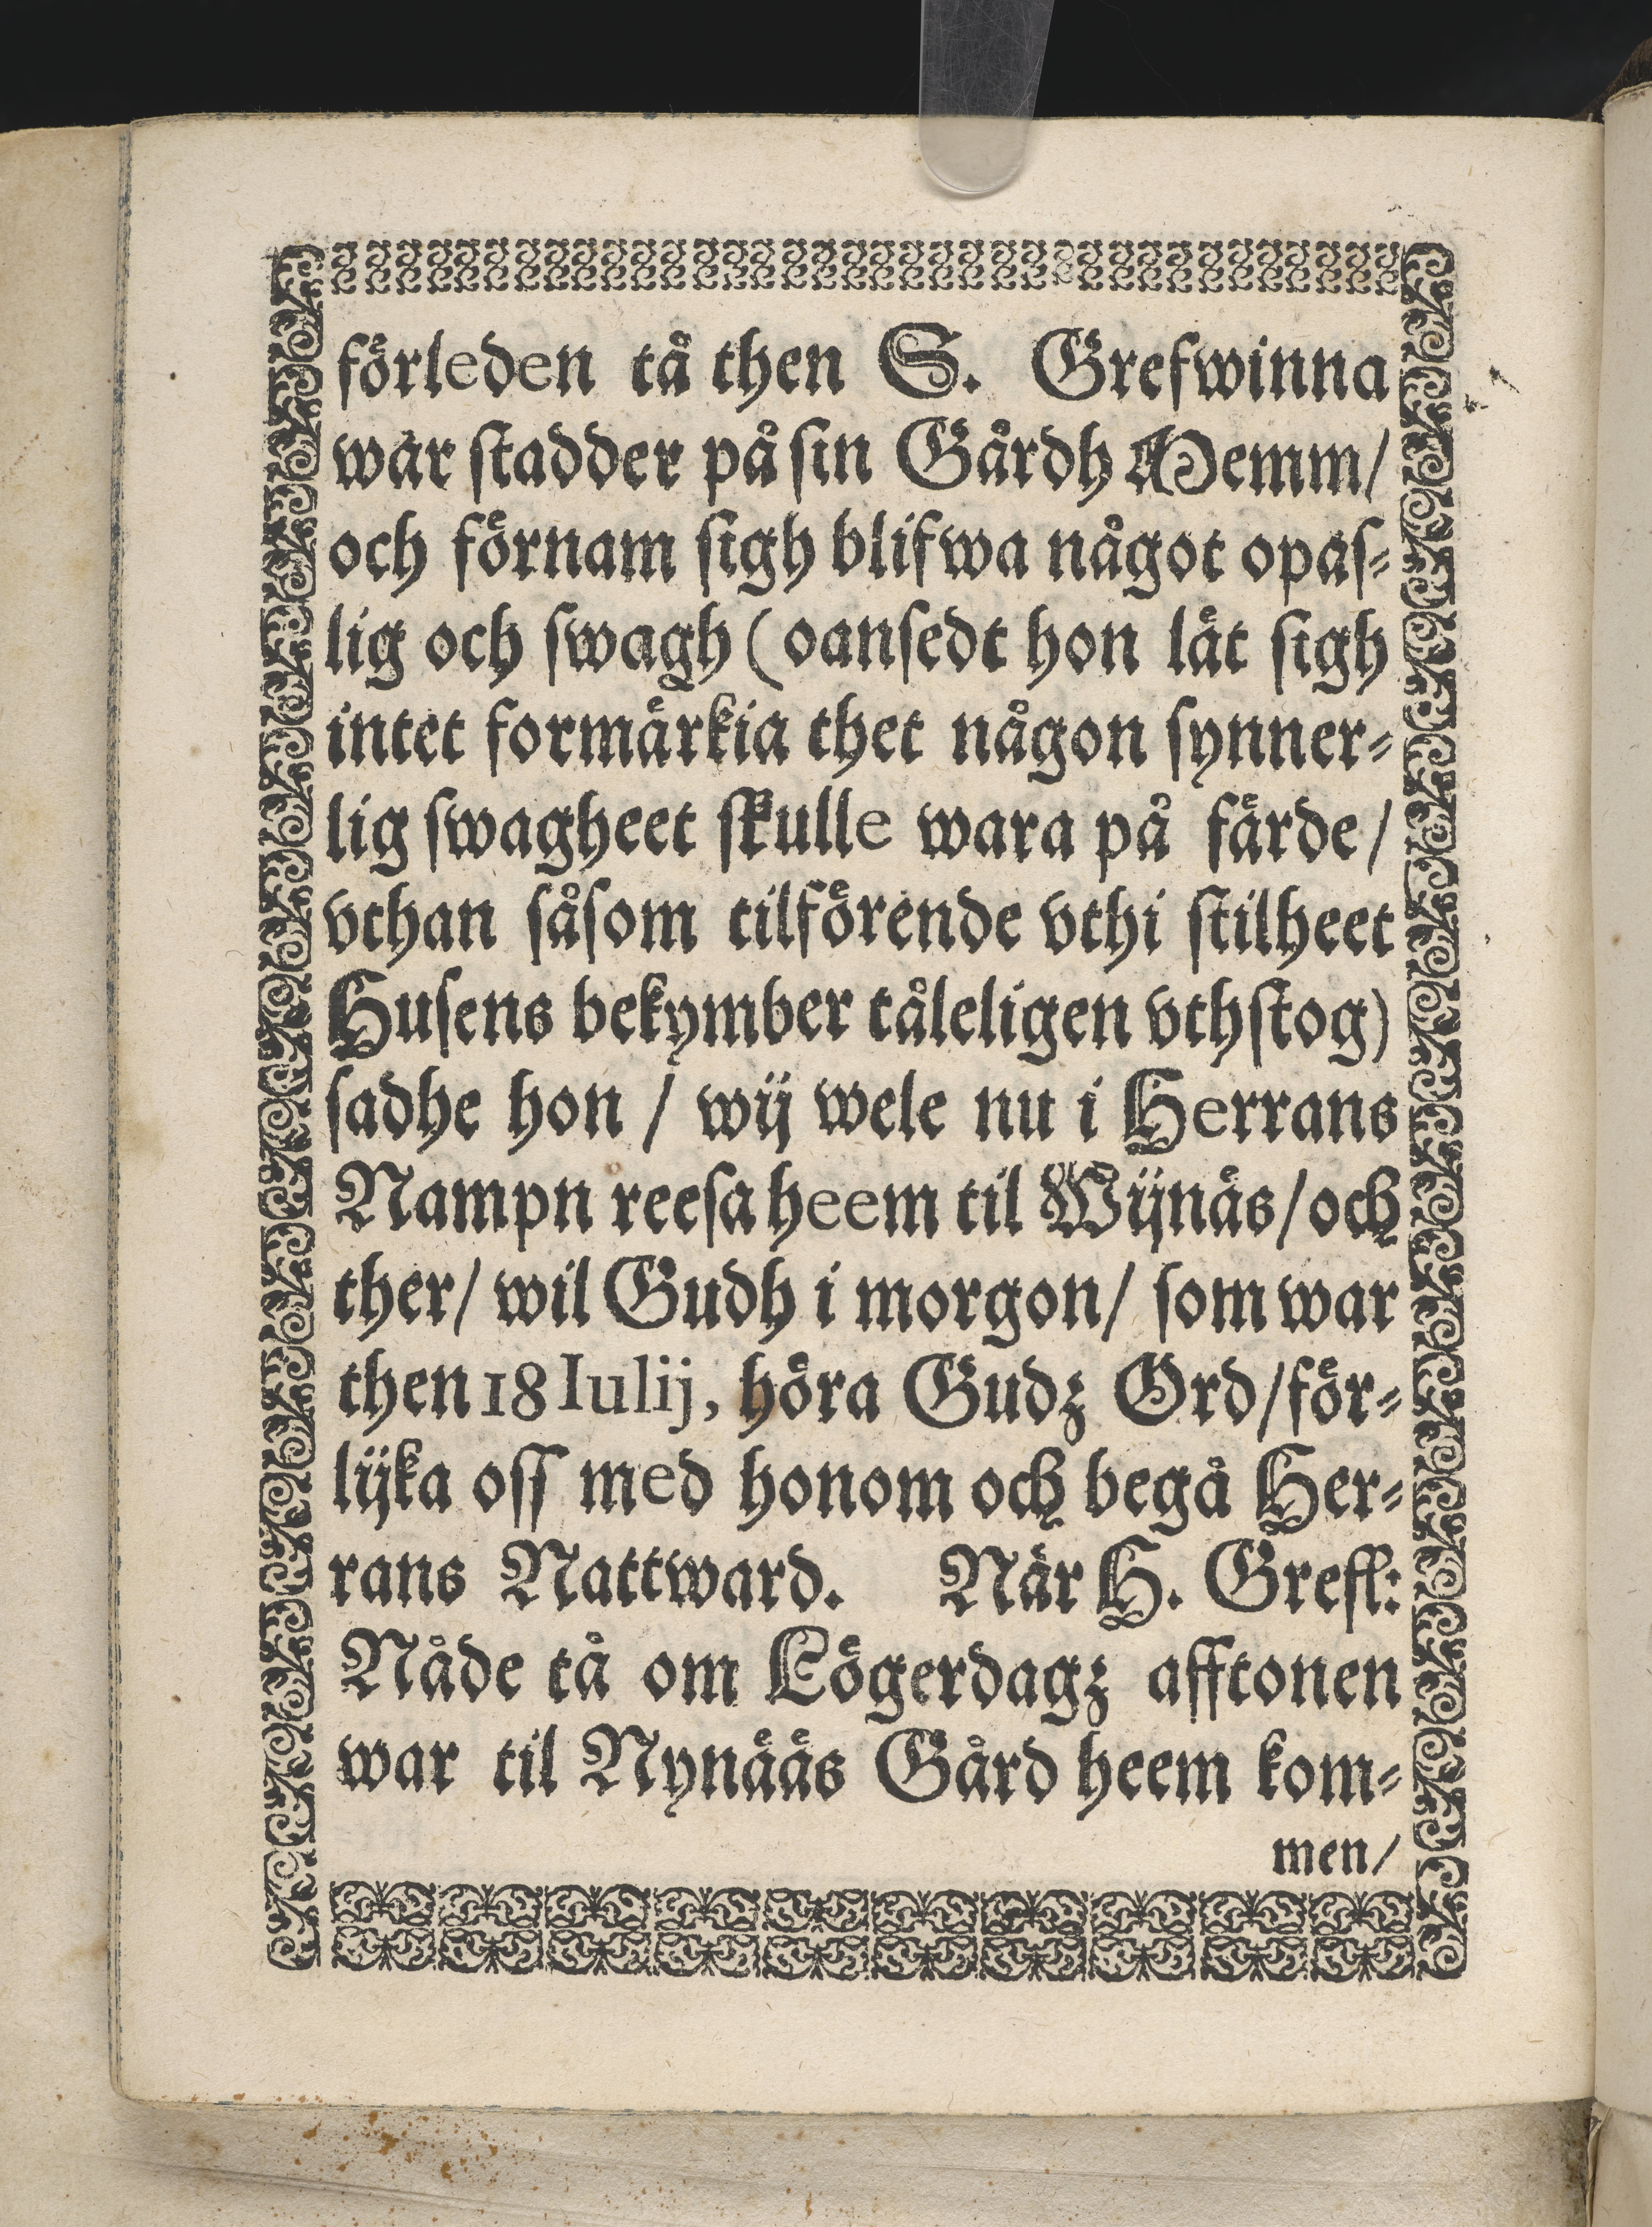 förleden tå then S. Grefwinna
war stadder på sin Gårdh Memm/
och förnam sigh blifwa något opas⸗
lig och swagh (oansedt hon lät sigh
intet formärkia thet någon synner⸗
lig swagheet skulle wara på färde/
vthan såsom tilförende vthi stilheet
Husens bekymber tåleligen vthstog)
sadhe hon / wij wele nu i Herrans
Nampn reesa heem til Wijnäs/och
ther/ wil Gudh i morgon/ som war
then 18 Iulij, höra Gudz Ord/för⸗
lijka oss med honom och begå Her⸗
rans Nattward. När H. Grefl:
Nåde tå om Lögerdagz afftonen
war til Nynääs Gård heem kom⸗
men/